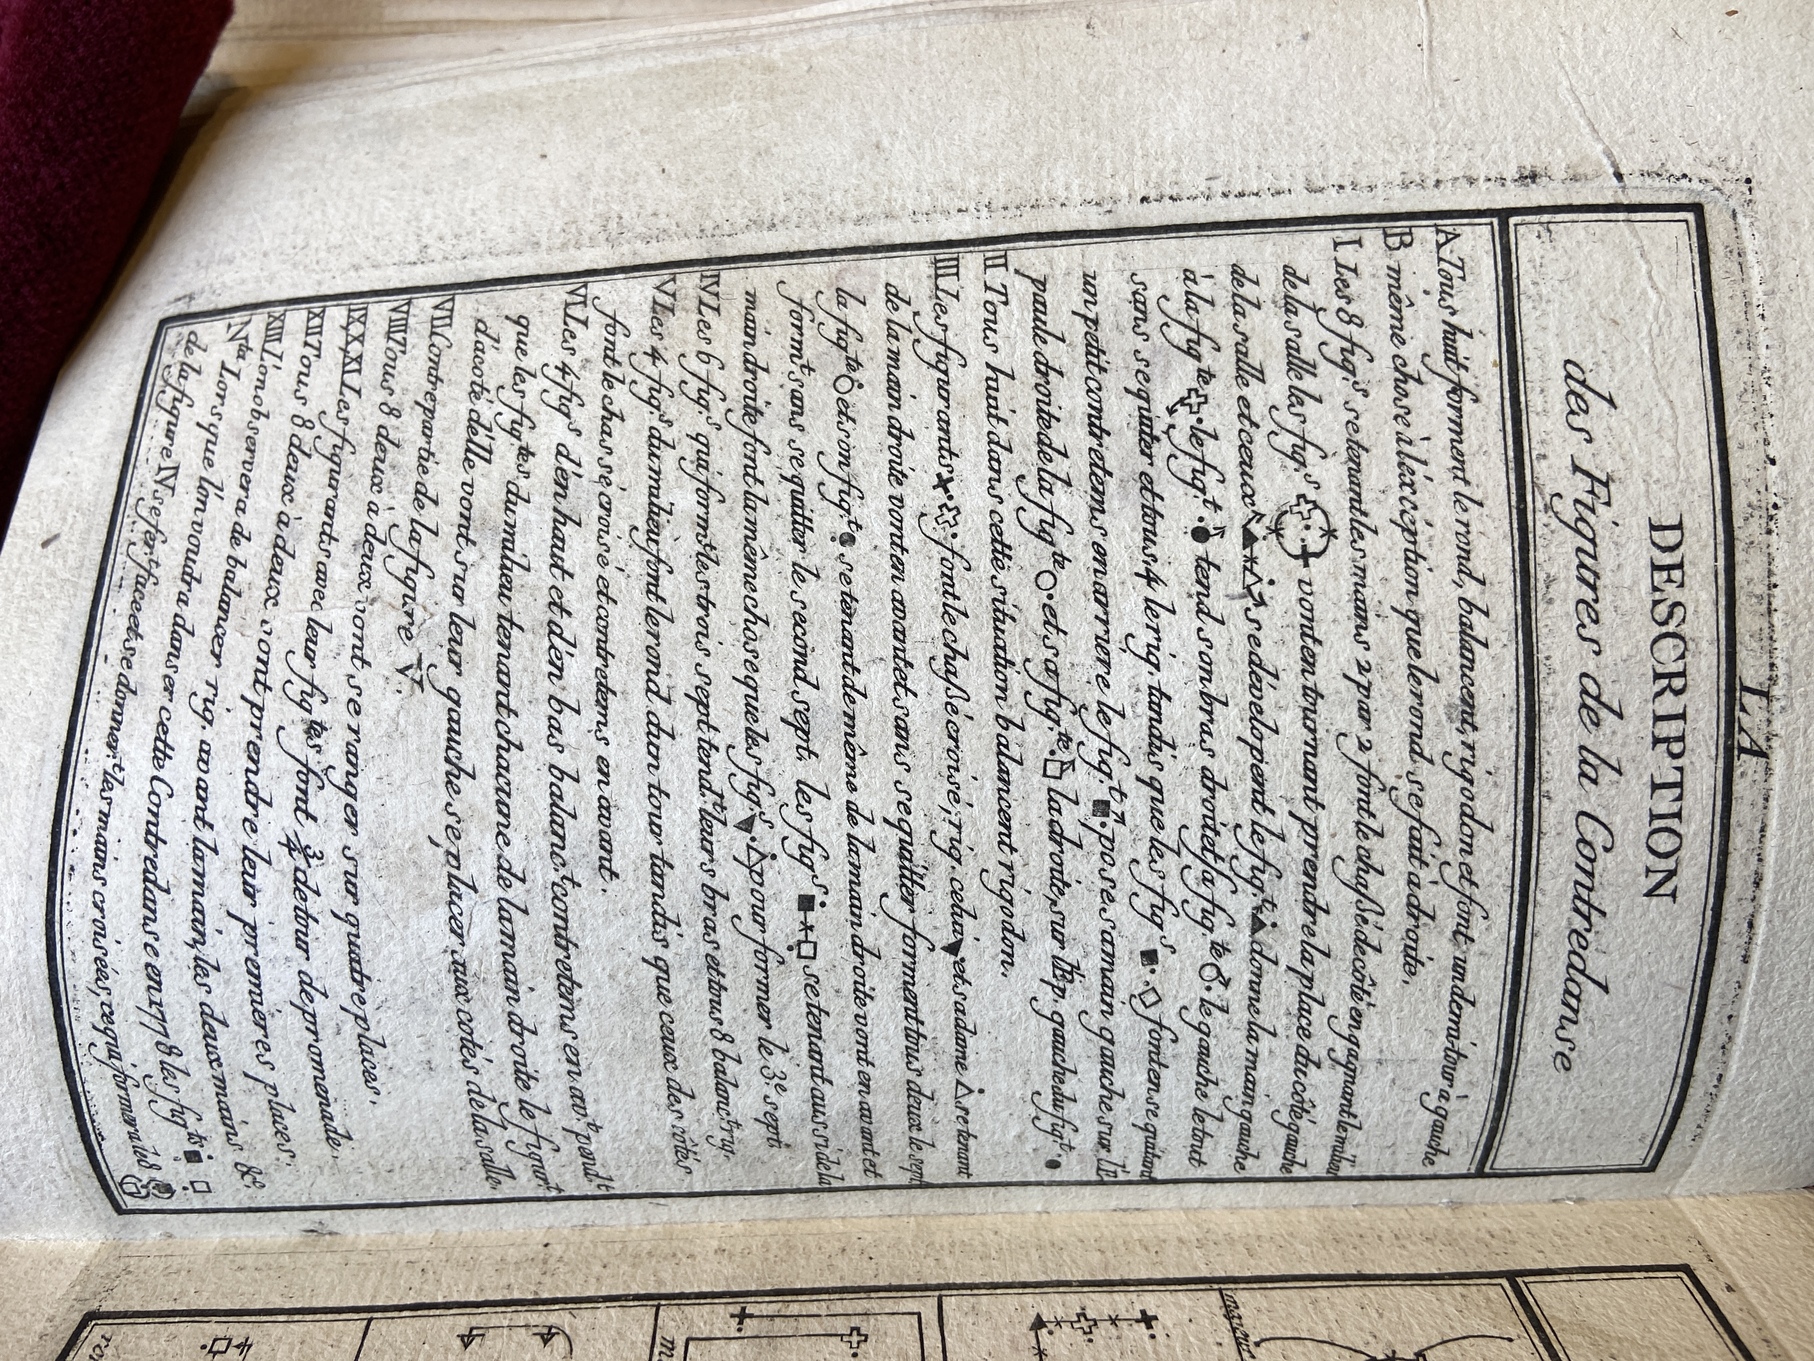 LA
DESCRIPTION
des Figures de la Contredanse
A Tous huit forment le rond, balancent, rigodon et font un demi-tour à gauche
B même chose à l'éxception que le rond se fait à droite.
I. Les 8 fig.s se tenant les mains 2 par 2 font le chaßé de côté en gagnant le milieu
de la salle les fig.s vont en tournant prendre la place du côté gauche
de la salle et ceux se dévelopent le fig.t donne la main gauche
à la fig.te le fig.t tend son bras droit et la fig.te le gauche le tout
sans se quiter et tous 4 le rig. tandis que les fig.s font en se quittant
un petit contretems en arriere le fig.t pose sa main gauche sur l'E
paule droite de la fig.te et sa fig.te la droite, sur l'Ep. gauche du fig.t
II Tous huit dans cette situation balancent rigodon.
III Les figurants font le chaßé croisé; rig. celui et sa dame se tenant
de la main droite vont en avant et sans se quitter forment tous deux le sept
la fig.te et son fig.t se tenant de même de la main droite vont en avant et
form.t sans se quitter le second sept. les fig.s se tenant aussi de la
main droite font la même chose que les fig.s pour former le 3e sept.
IV Les 6 fig.s qui form.t les trois sept tend.t leurs bras et tous 8 balanc.t rig.
V Les 4 fig.s du milieu font le rond d'un tour tandis que ceux des côtés
font le chassé croisé et contretems en avant.
VI Les 4 fig.s d'en haut et d'en bas balanc.t contretems en av.t pend.t
que les fig.tes du milieu tenant chacune de la main droite le figur.t
d'acoté d'elle vont sur leur gauche se placer aux cotés de la salle.
VII Contrepartie de la figure V.
VIII Tous 8 deux à deux vont se ranger sur quatre places,
IX X XI Les figurants avec leur fig.tes font 3/4 de tour de promenade.
XII Tous 8 deux à deux vont prendre leur premieres places.
XIII L'on observera de balancer rig. avant la main, les deux mains &c.
N.ta Lors que l'on voudra danser cette Contredanse en 1778 les fig.ts
de la figure IV se fer.t face et se donner.t les mains croisées, ce qui formera les 8